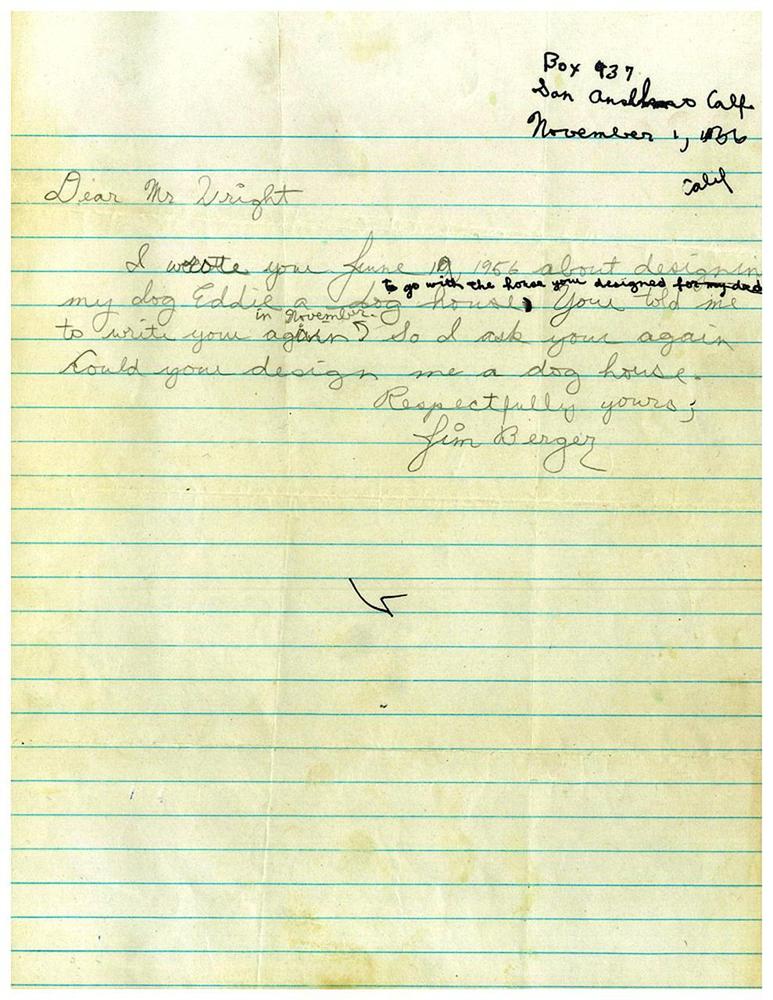 Box 437
San Anselmo Calf.
November 1, 1956
Calif
Dear Mr Wright
I wrote you June 19, 1956 about designin
to go with the house you designed for my dad
my dog Eddie a dog house, You told me
in November.
to write you again so I ask you again
Could you design me a dog house.
Respectfully yours,
Jim Berger